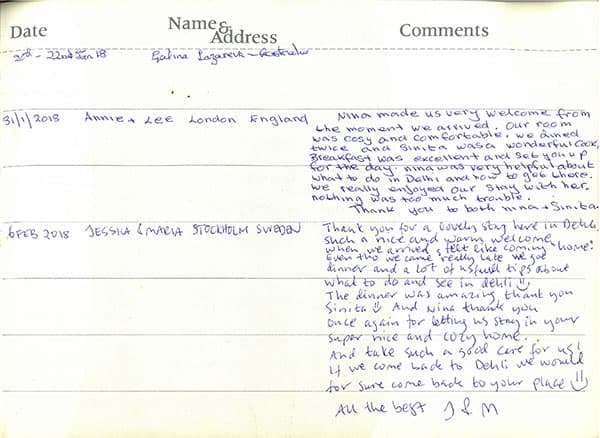 Date
Name & Address
Comments
- 22nd Jan 18
Galina
31/1/2018
Annie + Lee London England
Nina made us very welcome from
the moment we arrived. Our room
was cosy and comfortable. We dined
twice and Sinita was a wonderful cook.
Breakfast was excellent and set you up
for the day. Nina was very helpful about
what to do in Delhi and how to get there.
We really enjoyed our stay with her,
nothing was too much trouble.
Thank you to both Nina + Sinita.
6 FEB 2018
JESSICA & MARIA STOCKHOLM SWEDEN
Thank you for a lovely stay here in Dehli.
Such a nice and warm welcome
when we arrived, felt like coming "home".
Even tho we came really late we got
dinner and a lot of usfull tips about
what to do and see in dehli
The dinner was amazing thank you
Sinita And Nina thank you
once again for letting us stay in your
super nice and cozy home.
And take such a good care for us!
If we come back to Dehli we would
for sure come back to your place
All the best J & M